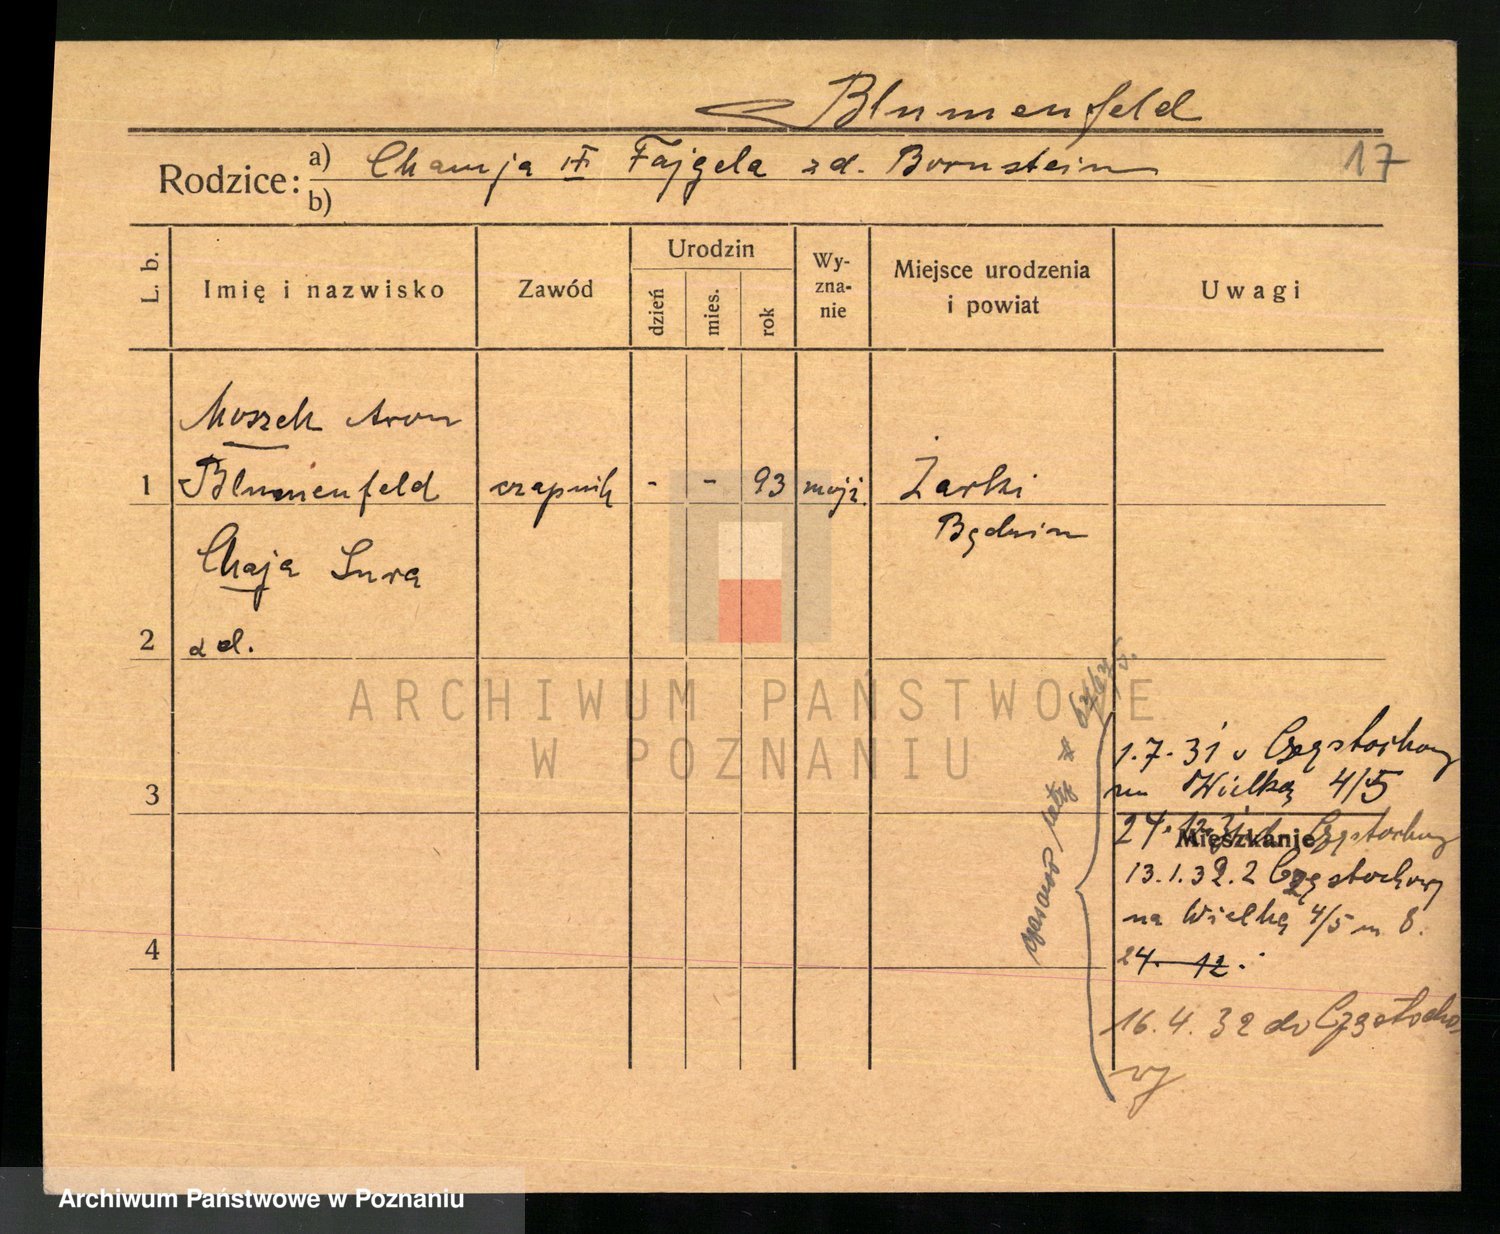 Blumenfeld
Rodzice: a) Fajgela zd. Bornstein 17
b)
L. b. Imię i nazwisko Zawód Urodzin dzień mies. rok Wy-zna-nie Miejsce urodzenia i powiat Uwagi
Moszek Aron
1 Blumenfeld czapnik - - 93 mojż. Żarki
Będzin
Chaja Sura
2 zd.
ARCHIWUM PAŃSTWOWE
W POZNANIU
1.7.31 z Częstochowy
3 na Wielką 4/5
24.12.31 do Częstochowy
Mieszkanie
13.1.32. z Częstochowy
na Wielką 4/5 m 8.
4 24. 12.
16.4.32 do Częstocho
wy
Archiwum Państwowe w Poznaniu